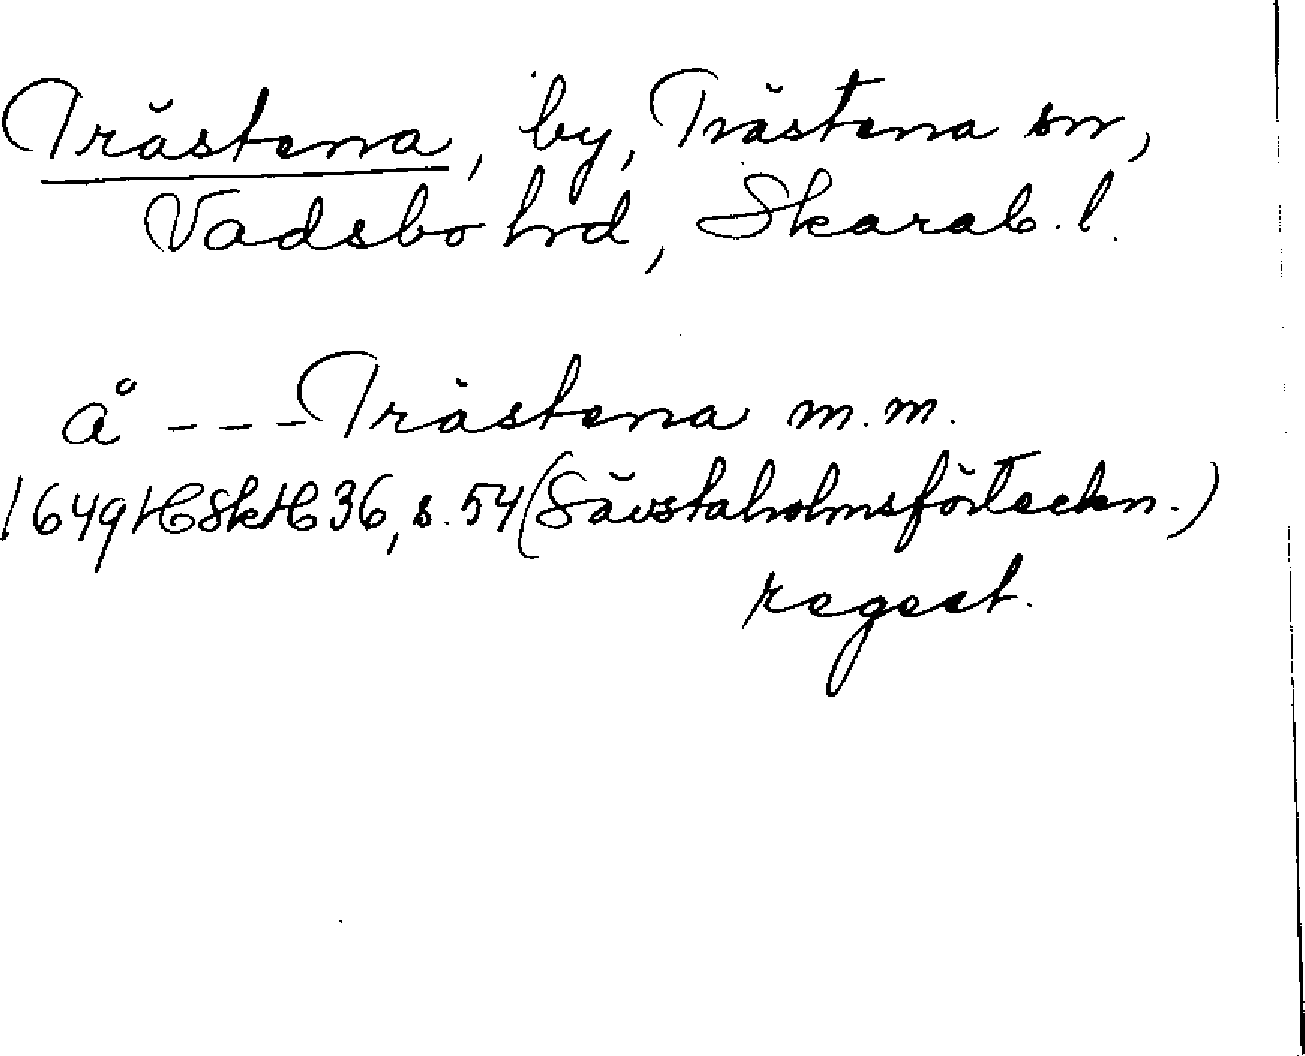 Trästena, by, Trästena sn,
Vadsbo hrd, Skarab. l.
å --- Trästena m.m.
1649 HSkH 36, s. 54 (Sävstaholmsförteckn.)
regest.